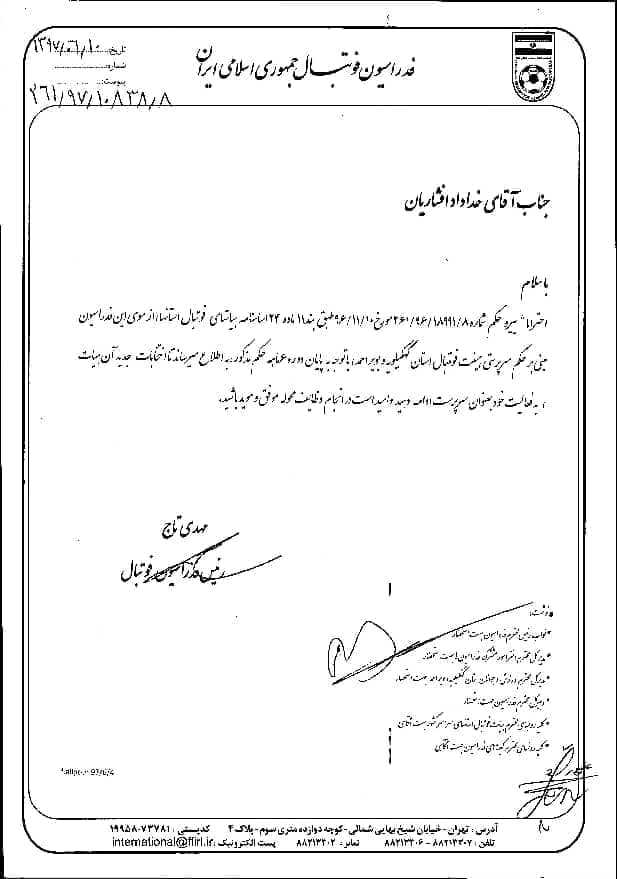 فدراسیون فوتبال جمهوری اسلامی ایران
تاریخ: ۱۳۹۷/۰۶/۱۰
شماره:
پیوست:
۲۶۱/۹۷/۱۰۸۳۸/۸
جناب آقای خداداد افشاریان
با سلام
احتراما" پیرو حکم شماره ۲۶۱/۹۶/۱۸۹۹۱/۸ مورخ ۹۶/۱۱/۱۰ طبق بند ۱۱ ماده ۲۴ اساسنامه هیاتهای فوتبال استانها، از سوی این فدراسیون
مبنی بر حکم سرپرستی هیئت فوتبال استان کهگیلویه و بویراحمد، با توجه به پایان دوره ۶ ماهه حکم مذکور، به اطلاع میرساند تا انتخابات جدید آن هیات
، به فعالیت خود بعنوان سرپرست ادامه دهید و امید است در انجام وظایف محوله موفق و موید باشید.
مهدی تاج
رئیس فدراسیون فوتبال
رونوشت:
• نواب رئیس محترم فدراسیون جهت استحضار
• مدیرکل محترم امور مشترک فدراسیون ها جهت استحضار
• مدیرکل محترم ورزش و جوانان استان کهگیلویه و بویراحمد جهت استحضار
• دبیرکل محترم فدراسیون جهت استحضار
• کلیه روسای محترم هیئت فوتبال استانهای سراسر کشور جهت آگاهی
• کلیه روسای محترم کمیته های فدراسیون جهت آگاهی
97/6/4
آدرس : تهران - خیابان شیخ بهایی شمالی - کوچه دوازده متری سوم - پلاک ۴ کدپستی : ۷۳۷۸۱-۱۹۹۵۸
تلفن : ۸۸۲۱۳۳۰۷ - ۸۸۲۱۳۳۰۶ نمابر : ۸۸۲۱۳۳۰۲ پست الکترونیک : international@ffiri.ir